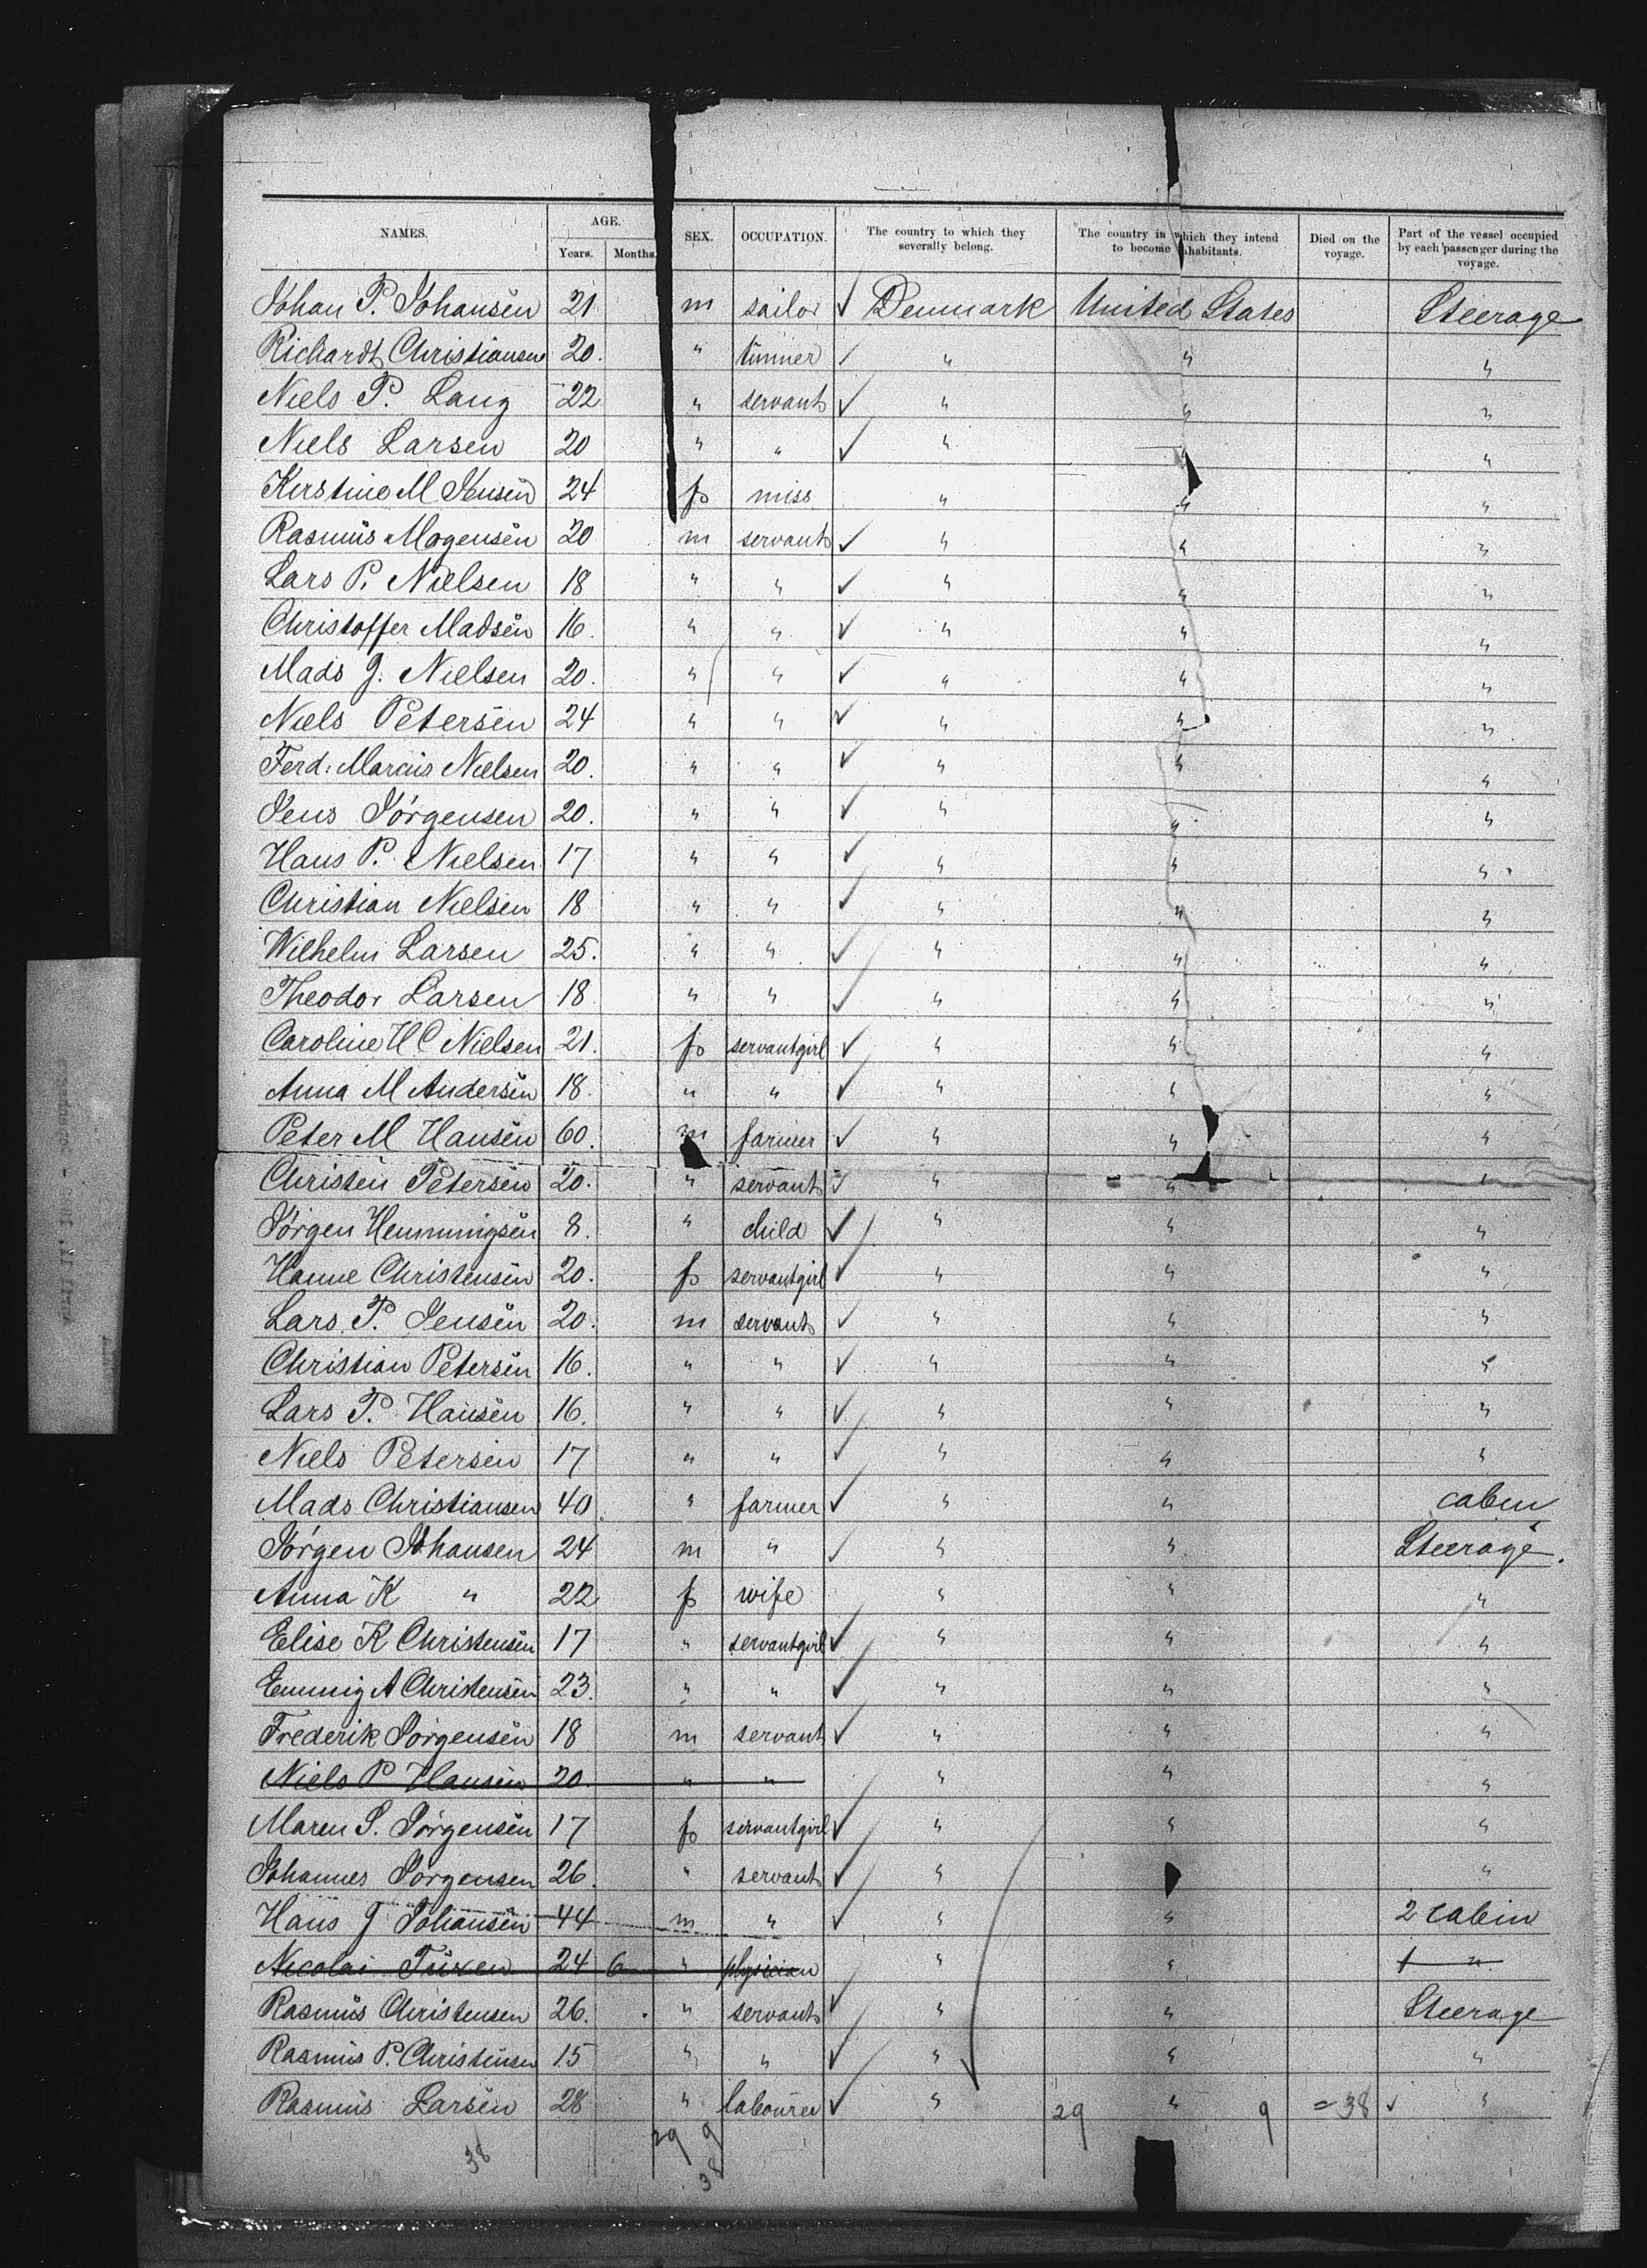 NAMES. AGE. SEX. OCCUPATION. The country to which they severally belong. The country in which they intend to become inhabitants. Died on the voyage. Part of the vessel occupied by each passenger during the voyage.
Years. Months.
Johan P. Johansen 21 m sailor ✓ Denmark United States Steerage
Richardt Christiansen 20. " tinner ✓ " " "
Niels P. Lang 22 " servant ✓ " " "
Niels Larsen 20 " " ✓ " " "
Kirstine M Jensen 24 f miss " " "
Rasmus Mogensen 20 m servant ✓ " " "
Lars P. Nielsen 18 " " ✓ " " "
Christoffer Madsen 16. " " ✓ " " "
Mads J. Nielsen 20. " " ✓ " " "
Niels Petersen 24 " " ✓ " " "
Ferd. Marcus Nielsen 20. " " ✓ " " "
Jens Jörgensen 20. " " ✓ " " "
Hans P. Nielsen 17 " " ✓ " " "
Christian Nielsen 18 " " ✓ " " "
Wilhelm Larsen 25. " " ✓ " " "
Theodor Larsen 18 " " ✓ " " "
Caroline H C Nielsen 21. f servantgirl ✓ " " "
Anna M Andersen 18. " " ✓ " " "
Peter M Hansen 60. m farmer ✓ " " "
Christen Petersen 20. " servant ✓ " " "
Jörgen Hemmingsen 8. " child ✓ " " "
Hanne Christensen 20. f servantgirl ✓ " " "
Lars P. Jensen 20. m servant ✓ " " "
Christian Petersen 16. " " ✓ " " "
Lars P. Hansen 16. " " ✓ " " "
Niels Petersen 17 " " ✓ " " "
Mads Christiansen 40. " farmer ✓ " " cabin
Jörgen Johansen 24 m " ✓ " " Steerage.
Anna K " 22 f wife " " "
Elise K Christensen 17 " servantgirl ✓ " " "
Emmig A Christensen 23. " " ✓ " " "
Frederik Jörgensen 18 m servant ✓ " " "
Niels P Hansen 20. " " " " "
Maren S. Jörgensen 17 f servantgirl ✓ " " "
Johannes Jorgensen 26. " servant ✓ " " "
Hans J Johansen 44 m " ✓ " " 2 cabin
Nicolai Tuxen 24 6 " physician " " 1 "
Rasmus Christensen 26. " servant ✓ " " Steerage
Rasmus P. Christensen 15 " " ✓ " " "
Rasmus Larsen 28 " labourer ✓ " 29 " 9 = 38 ✓ "
38 29 9
38